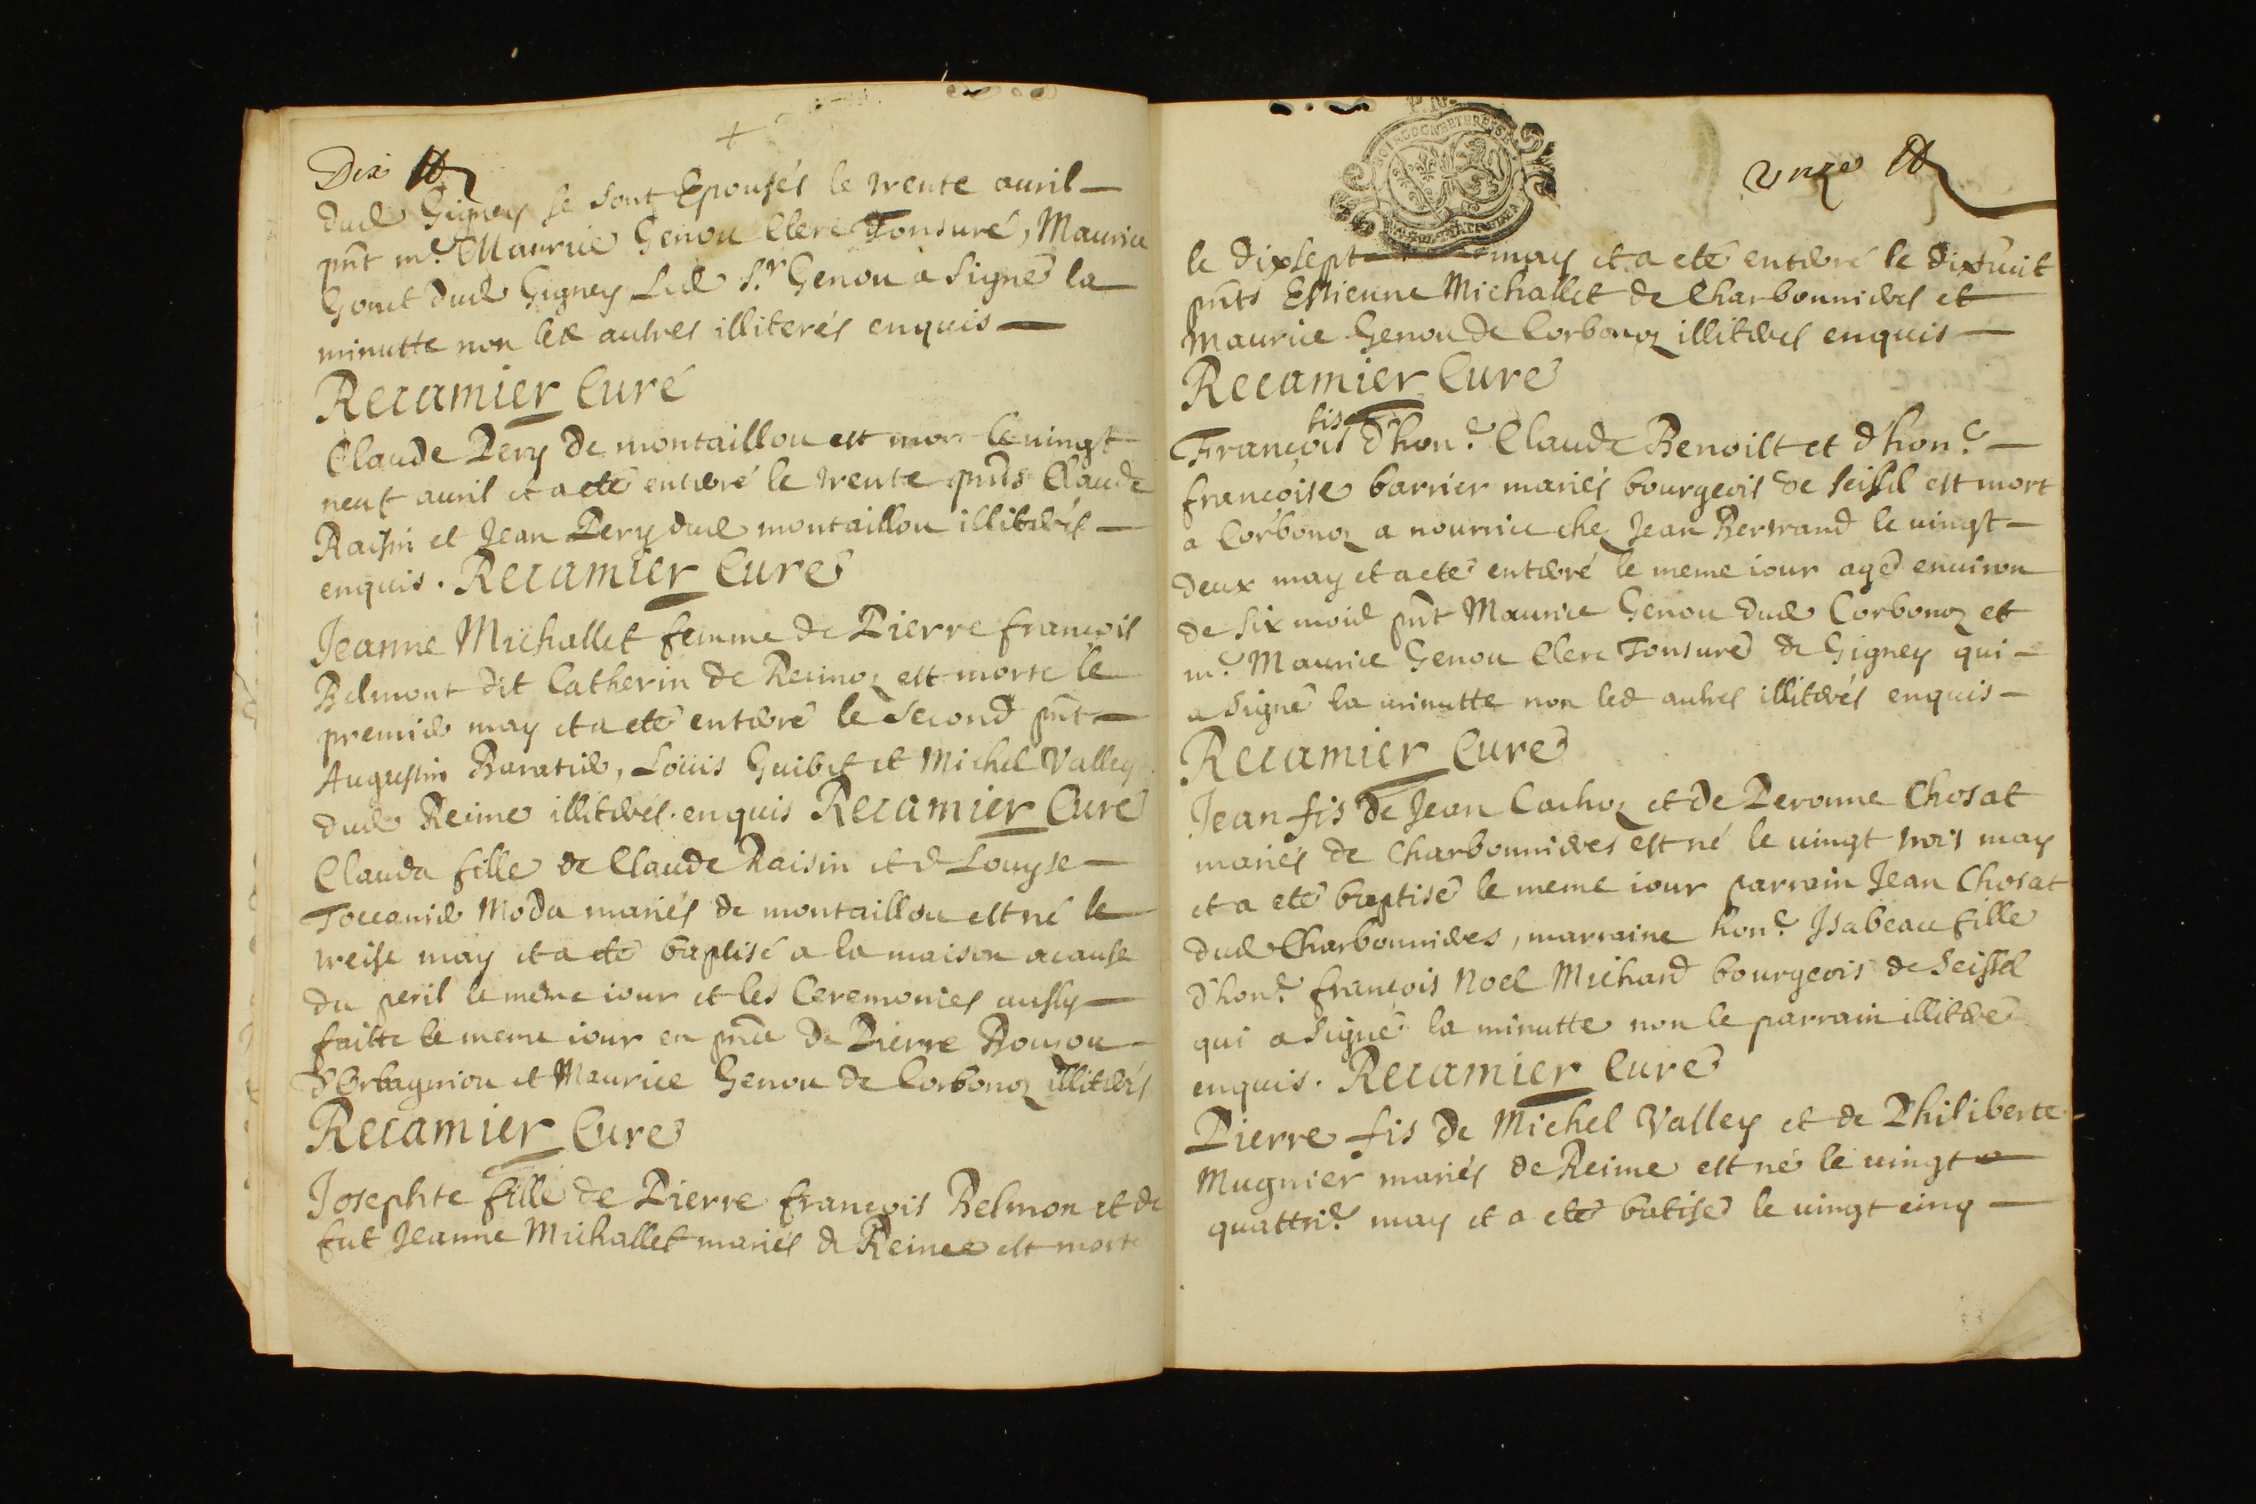 Dix
dud Gigney se sont Epousés le trente auril
pnt mr Maurice Genou Clerc Tonsuré, Maurice
Gonet dud Gigney Led Sr Genou a signé la
minutte non led autres illiterés enquis
Recamier Curé
Claude Pery de montaillou est mort le uingt
neuf auril et a eté enterré le trente pnts Claude
Raisin et Jean Pery dud montaillou illiterés
enquis. Recamier Curé
Jeanne Michallet femme de Pierre françois
Belmont dit Catherin de Reimoz est morte le
premier may et a eté enterré le second pnt
Augustin Baratier, Loüis Guibet et Michel Valley
dud Reime illiterés enquis Recamier Curé
Clauda fille de Claude Raisin et d Louyse
Toccanier Modu mariés de montaillou est né le
treise may et a eté baptisé a la maison acause
du peril le même iour et les Ceremonies aussy
faitte le meme iour en pnce de Pierre
d'Orbagniou et Maurice Genou de Corbonoz illiterés
Recamier Curé
Josephte fille de Pierre françois Belmon et de
fut Jeanne Michallet mariés de Reime est morte
unze
le dixsept may et a eté enterré le dixhuit
pnts Estienne Michallet de Charbonnieres et
Maurice Genou de Corbonoz illiterés enquis
Recamier Curé
fis
François d'hon.e Claude Benoist et d'hon.e
françoise barrier mariés bourgeois de seissel est mort
a Corbonoz a nourrice chez Jean Bertrand le uingt
deux may et a eté enterré le meme iour agé enuiron
de six mois pnt Maurice Genou dud Corbonoz et
mr Maurice Genou Clerc Tonsuré de Gigney qui
a signé la minutte non led autres illiterés enquis
Recamier Curé
Jean fis de Jean Cachoz et de Peronne Chosat
mariés de Charbonnieres est né le uingt trois may
et a eté baptisé le meme iour parrain Jean Chosat
dud Charbonnieres, marraine hon.e Isabeau fille
d'hon.e françois Noel Michard bourgeois de Seissel
qui a signé la minutte non le parrain illiteré
enquis. Recamier Curé
Pierre fis de Michel Valley et de Philiberte
Mugnier mariés de Reime est né le uingt
quattrie may et a eté batisé le uingt cinq